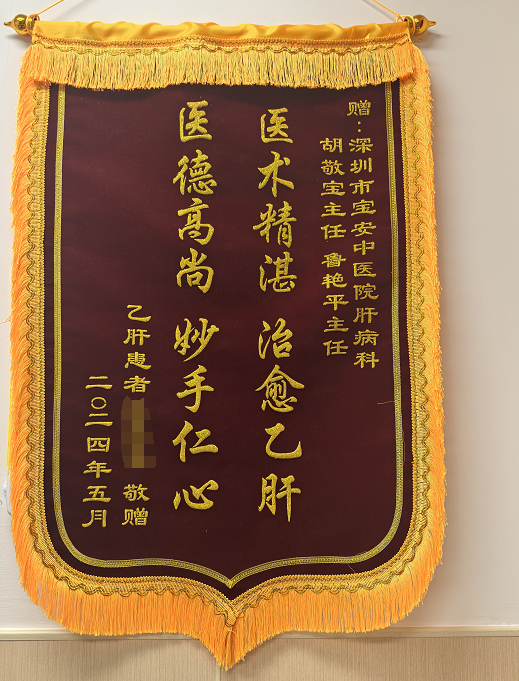 赠：深圳市宝安中医院肝病科
胡敬宝主任 鲁艳平主任
医术精湛 治愈乙肝
医德高尚 妙手仁心
乙肝患者 敬赠
二〇二四年五月